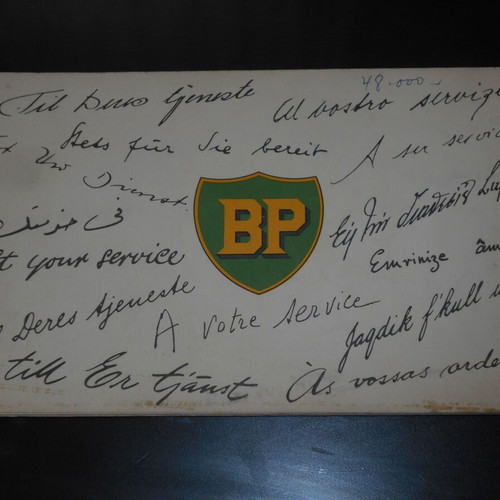 48.000
Til Deres tjeneste
Al vostro servizi
Stets für Sie bereit
A su servic
Uw Dienst
في خدمتك
BP
Εἰς τὴν
t your service
Emrinize âm
Deres tjeneste
A votre service
Jagdik f'kull
till Er tjänst
Às vossas orde